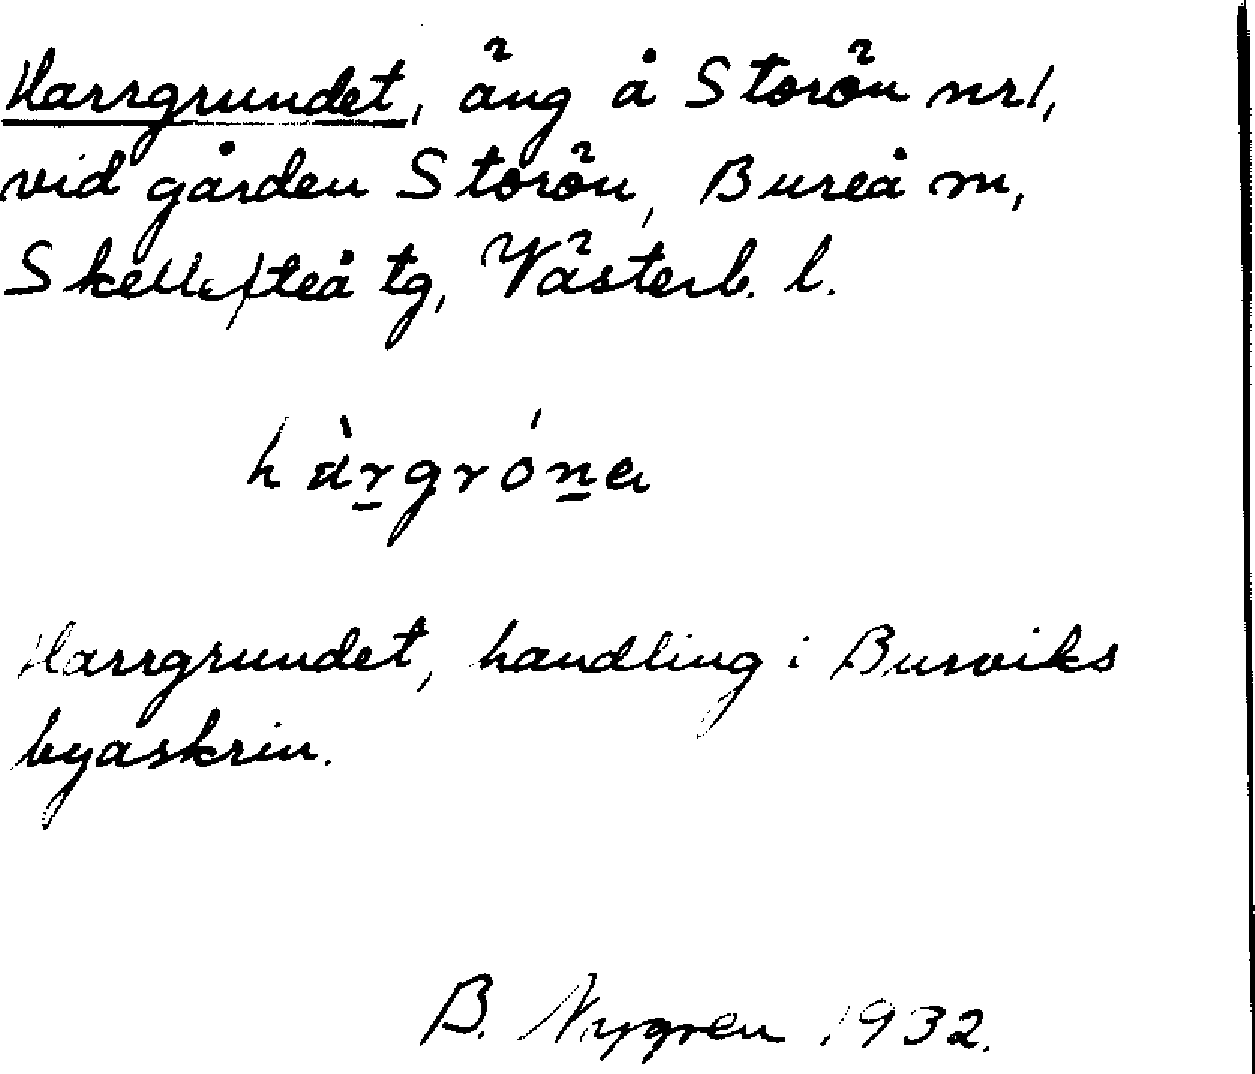 Harrgrundet, äng å Storön nr 1,
vid gården Storön, Bureå m,
Skellefteå tg, Västerb. l.
hàr̠grón̠a
Harrgrundet, handling i Burviks
byaskrin.
B. Nygren 1932.